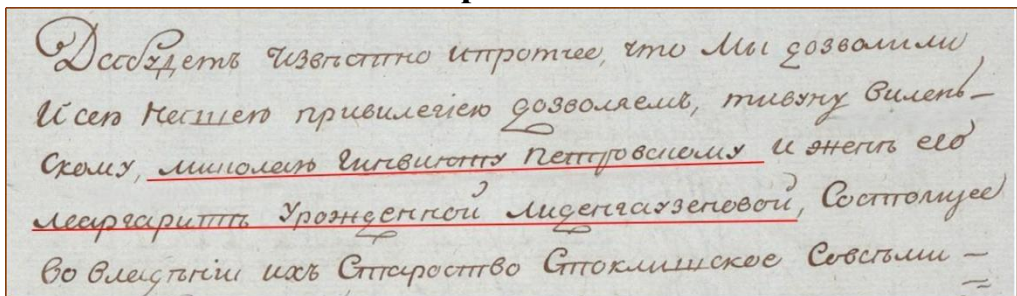 Да будетъ извѣстно и протчее, что Мы дозволили
и сею нашею привилегіею дозволяемъ, тивуну вилень-
скому, миколаю Гинвинту Петровскому и женѣ его
маргаритѣ Урожденной Лиденгаузеновой, Состоящее
во владѣніи ихъ Староство Стоклишское Совсѣми =